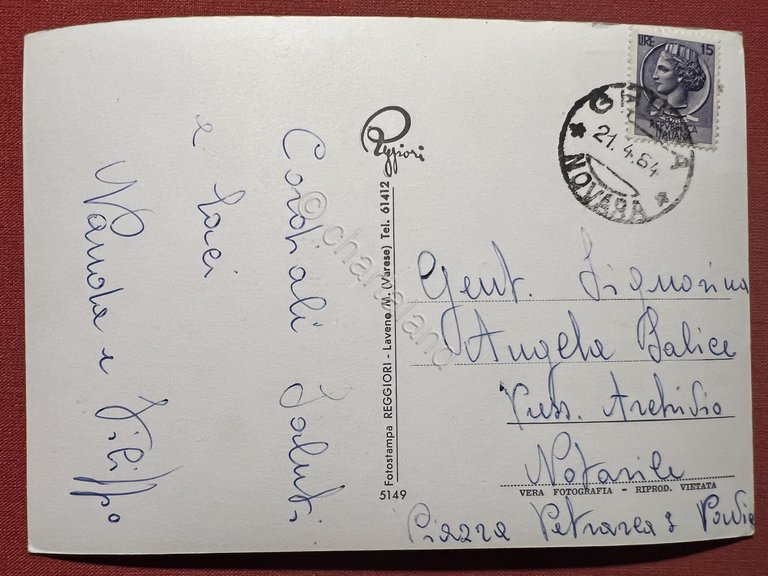 Cordiali Saluti
e baci
Wanda e Filippo
Reggiori
Fotostampa REGGIORI - Laveno M. (Varese) Tel. 61412
5149
LIRE 15
REPUBBLICA
ITALIANA
21.4.64
NOVARA
Gent. Signorina
Angela Balice
Archivio
Notarile
VERA FOTOGRAFIA - RIPROD. VIETATA
Piazza Petrarca 3
© charaland